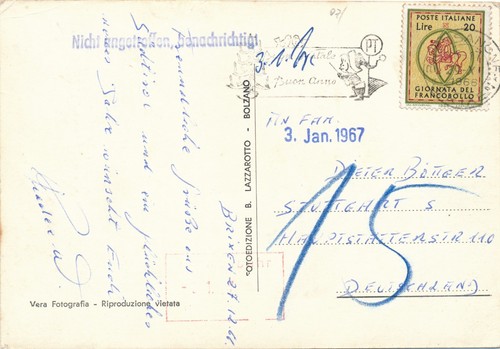 Nicht angetroffen, benachrichtigt
Freundliche Grüße aus
Südtirol und ein glückliches
neues Jahr wünscht Euch
Brixen 27.12.66.
FOTOEDIZIONE B. LAZZAROTTO - BOLZANO
Vera Fotografia - Riproduzione vietata
Buon Anno
PT
POSTE ITALIANE
Lire 20
GIORNATA DEL
FRANCOBOLLO
An Fam.
3. Jan. 1967
Dieter Böttger
Stuttgart S
Hauptstätterstr 110
Deutschland
15